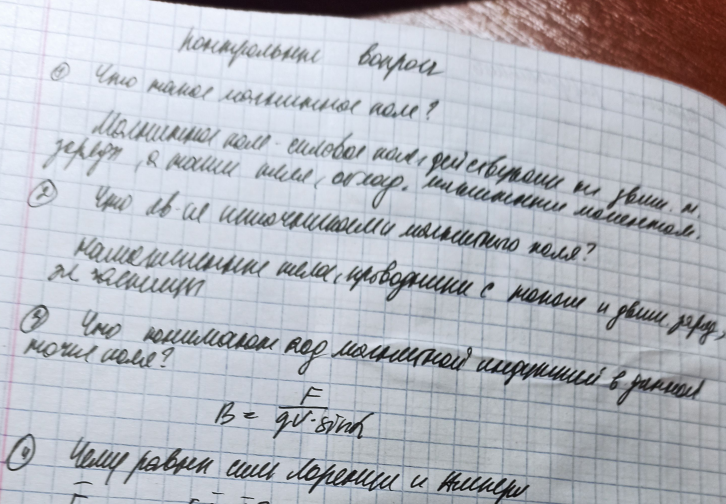 Контрольные вопросы
① Что такое магнитное поле?
Магнитное поле - силовое поле, действующее на движ. эл.
заряды, а также тела, облад. магнитным моментом.
② Что яв-ся источниками магнитного поля?
Намагниченные тела, проводники с током и движ. заряд,
эл частицы
③ Что понимают под магнитной индукцией в данной
точке поля?
B = F / qV · sin α
④ Чему равны силы Лоренца и Ампера